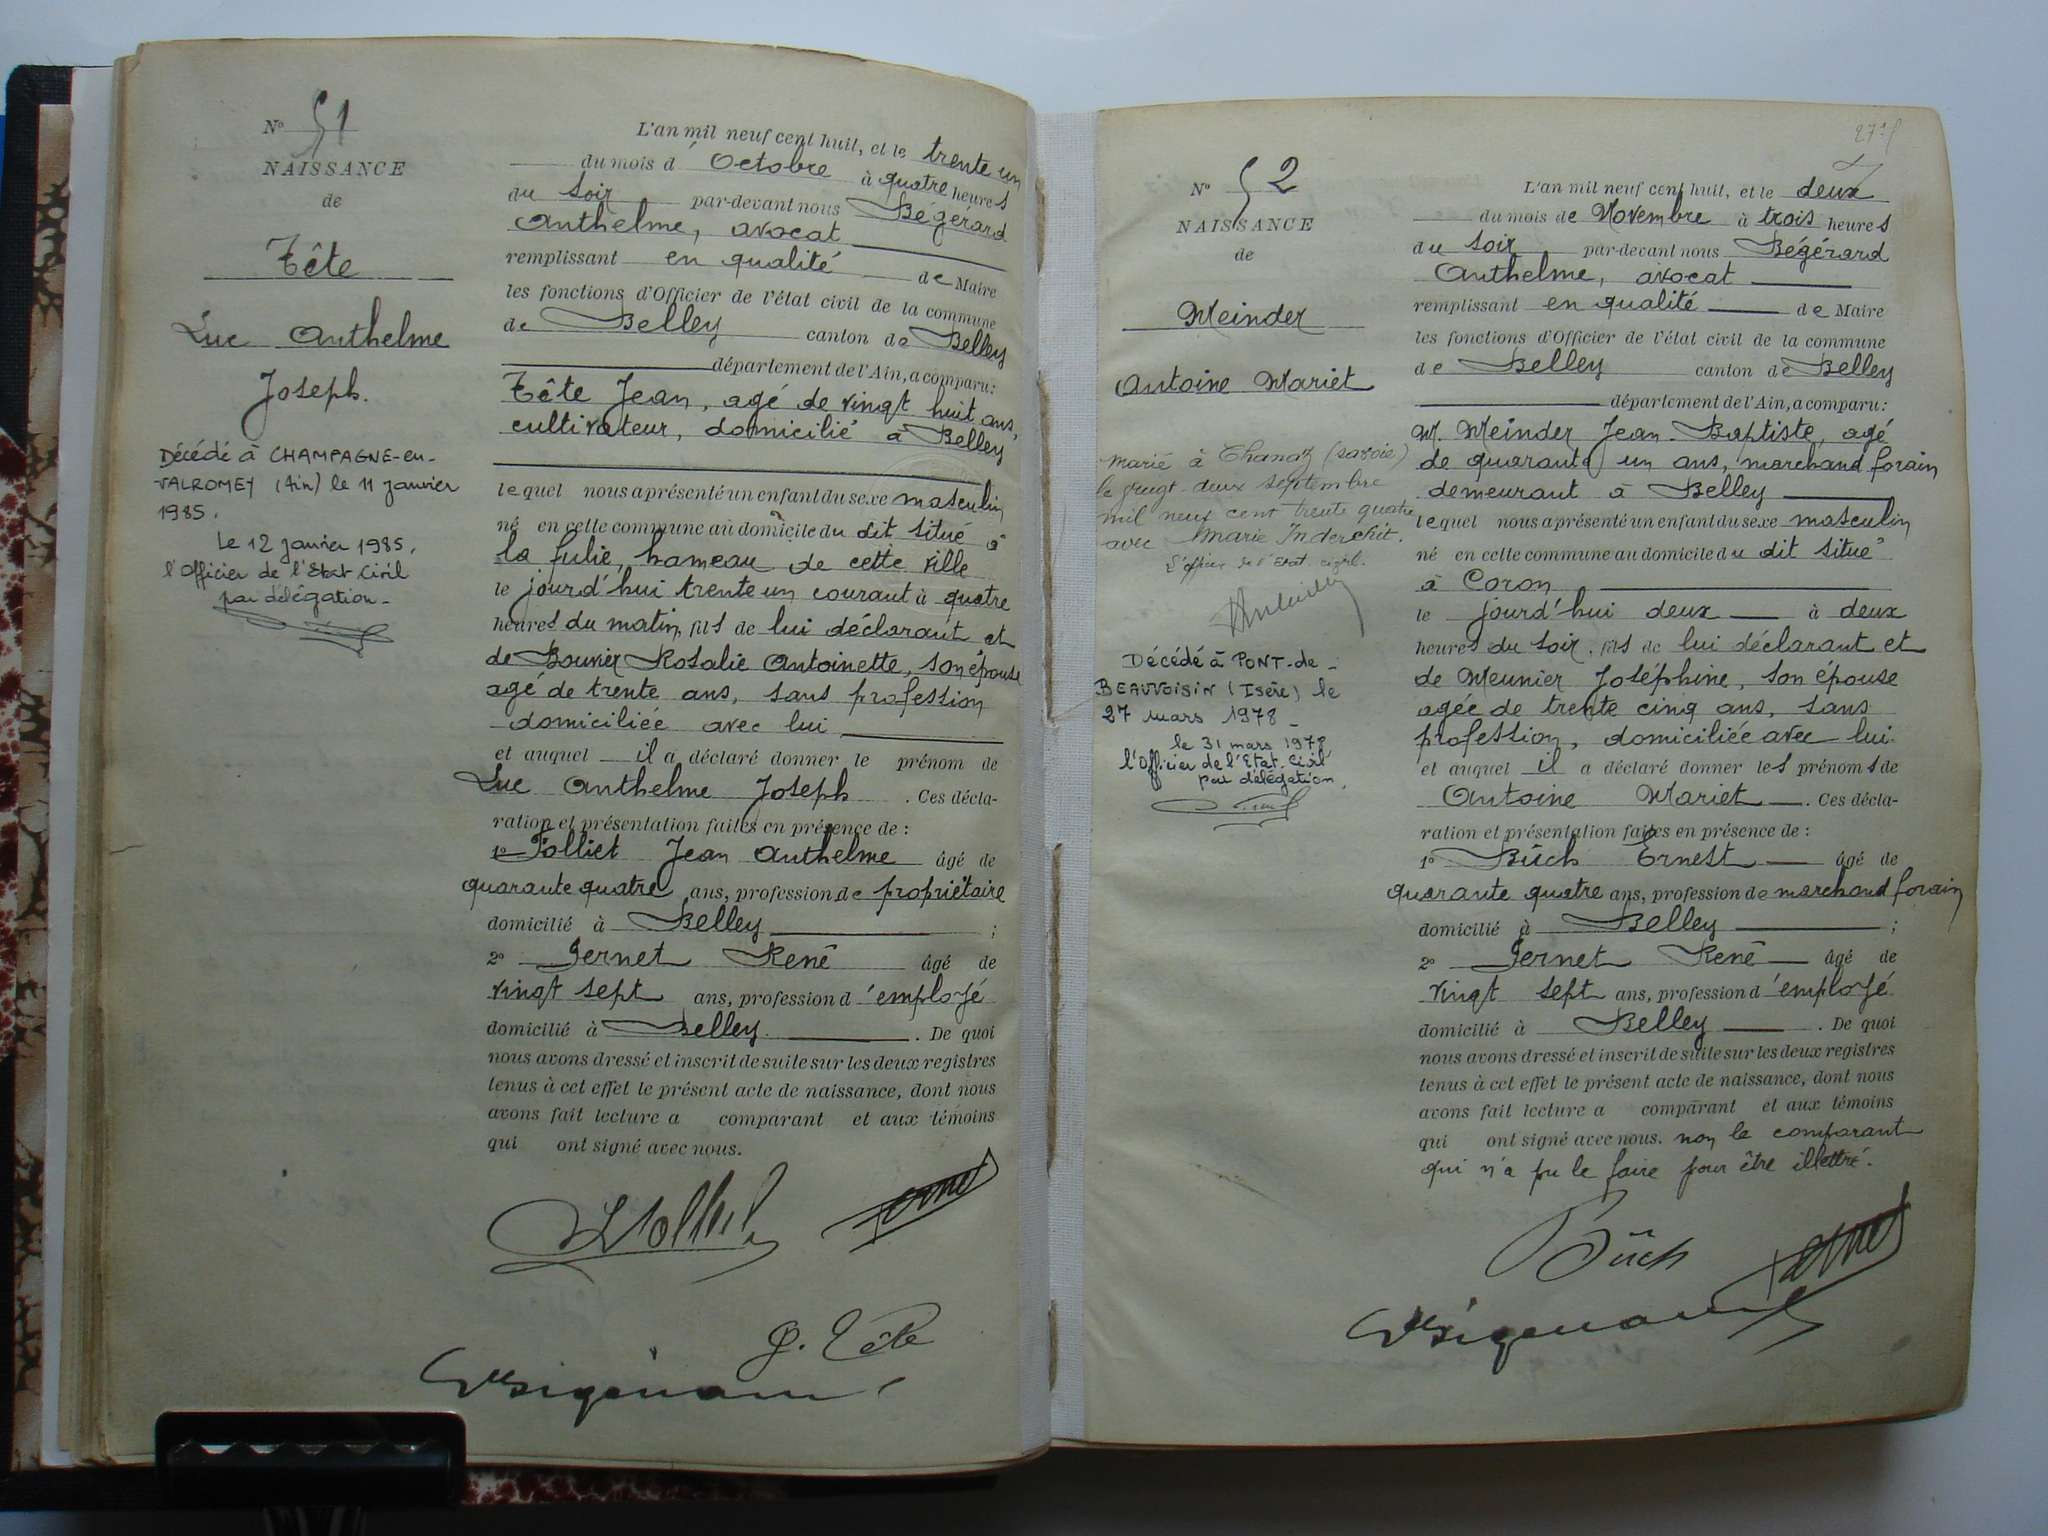 N° 51
NAISSANCE
de
Tête
Luc Anthelme
Joseph.
Décédé à CHAMPAGNE-en-
VALROMEY (Ain) le 11 janvier
1985.
Le 12 janvier 1985,
l'Officier de l'Etat Civil
par délégation -
L'an mil neuf cent huit, et le trente un
du mois d'Octobre à quatre heures
du soir par-devant nous Bégérard
Anthelme, avocat
remplissant en qualité de Maire
les fonctions d'Officier de l'état civil de la commune
de Belley canton de Belley
département de l'Ain, a comparu:
Tête Jean, agé de vingt huit ans,
cultivateur, domicilié à Belley
lequel nous a présenté un enfant du sexe masculin
né en cette commune au domicile du dit situé à
la Julie, hameau de cette ville
le jourd'hui trente un courant à quatre
heures du matin, fils de lui déclarant et
de Bouvier Rosalie Antoinette, son épouse
agé de trente ans, sans profession
domiciliée avec lui
et auquel il a déclaré donner le prénom de
Luc Anthelme Joseph. Ces décla-
ration et présentation faites en présence de :
1° Folliet Jean Anthelme âgé de
quarante quatre ans, profession de propriétaire
domicilié à Belley ;
2° Fernet René âgé de
vingt sept ans, profession d'employé
domicilié à Belley. De quoi
nous avons dressé et inscrit de suite sur les deux registres
tenus à cet effet le présent acte de naissance, dont nous
avons fait lecture a comparant et aux témoins
qui ont signé avec nous.
J. Tête
N° 52
NAISSANCE
de
Meinder
Antoine Mariet
marié à Chanaz (savoie)
le vingt-deux septembre
mil neuf cent trente quatre
avec Marie Inderchit.
L'officier de l'Etat civil.
Décédé à PONT-de-
BEAUVOISIN (Isère) le
27 mars 1978 -
le 31 mars 1978,
l'Officier de l'Etat-Civil
par délégation.
L'an mil neuf cent huit, et le deux
du mois de Novembre à trois heures
du soir par-devant nous Bégérard
Anthelme, avocat
remplissant en qualité de Maire
les fonctions d'Officier de l'état civil de la commune
de Belley canton de Belley
département de l'Ain, a comparu:
M. Meinder Jean-Baptiste, agé
de quarante un ans, marchand forain
demeurant à Belley
lequel nous a présenté un enfant du sexe masculin
né en cette commune au domicile du dit situé
à Coron
le jourd'hui deux à deux
heures du soir, fils de lui déclarant et
de Meunier Joséphine, son épouse
agée de trente cinq ans, sans
profession, domiciliée avec lui
et auquel il a déclaré donner les prénoms de
Antoine Mariet. Ces décla-
ration et présentation faites en présence de :
1° Büch Ernest âgé de
quarante quatre ans, profession de marchand forain
domicilié à Belley ;
2° Fernet René âgé de
vingt sept ans, profession d'employé
domicilié à Belley. De quoi
nous avons dressé et inscrit de suite sur les deux registres
tenus à cet effet le présent acte de naissance, dont nous
avons fait lecture a comparant et aux témoins
qui ont signé avec nous. non le comparant
qui n'a pu le faire pour être illettré.
Büch